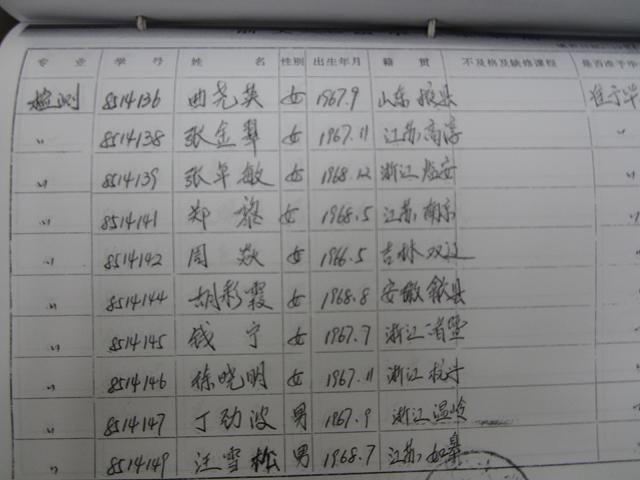 专 业 学 号 姓 名 性别 出生年月 籍 贯 不及格及缺修课程 是否准予毕
检测 8514136 曲尧英 女 1967.9 山东掖县 准予毕
〃 8514138 张金翠 女 1967.11 江苏高淳 〃
〃 8514139 张卓敏 女 1968.12 浙江临安 〃
〃 8514141 郑 女 1968.5 江苏南京 〃
〃 8514142 周 女 1966.5 吉林双辽 〃
〃 8514144 胡彩霞 女 1968.8 安徽歙县 〃
〃 8514145 钱宁 女 1967.7 浙江诸暨 〃
〃 8514146 徐晓明 女 1967.11 浙江杭州 〃
〃 8514147 丁劲波 男 1967.9 浙江温岭 〃
〃 8514149 汪雪松 男 1968.7 江苏如皋